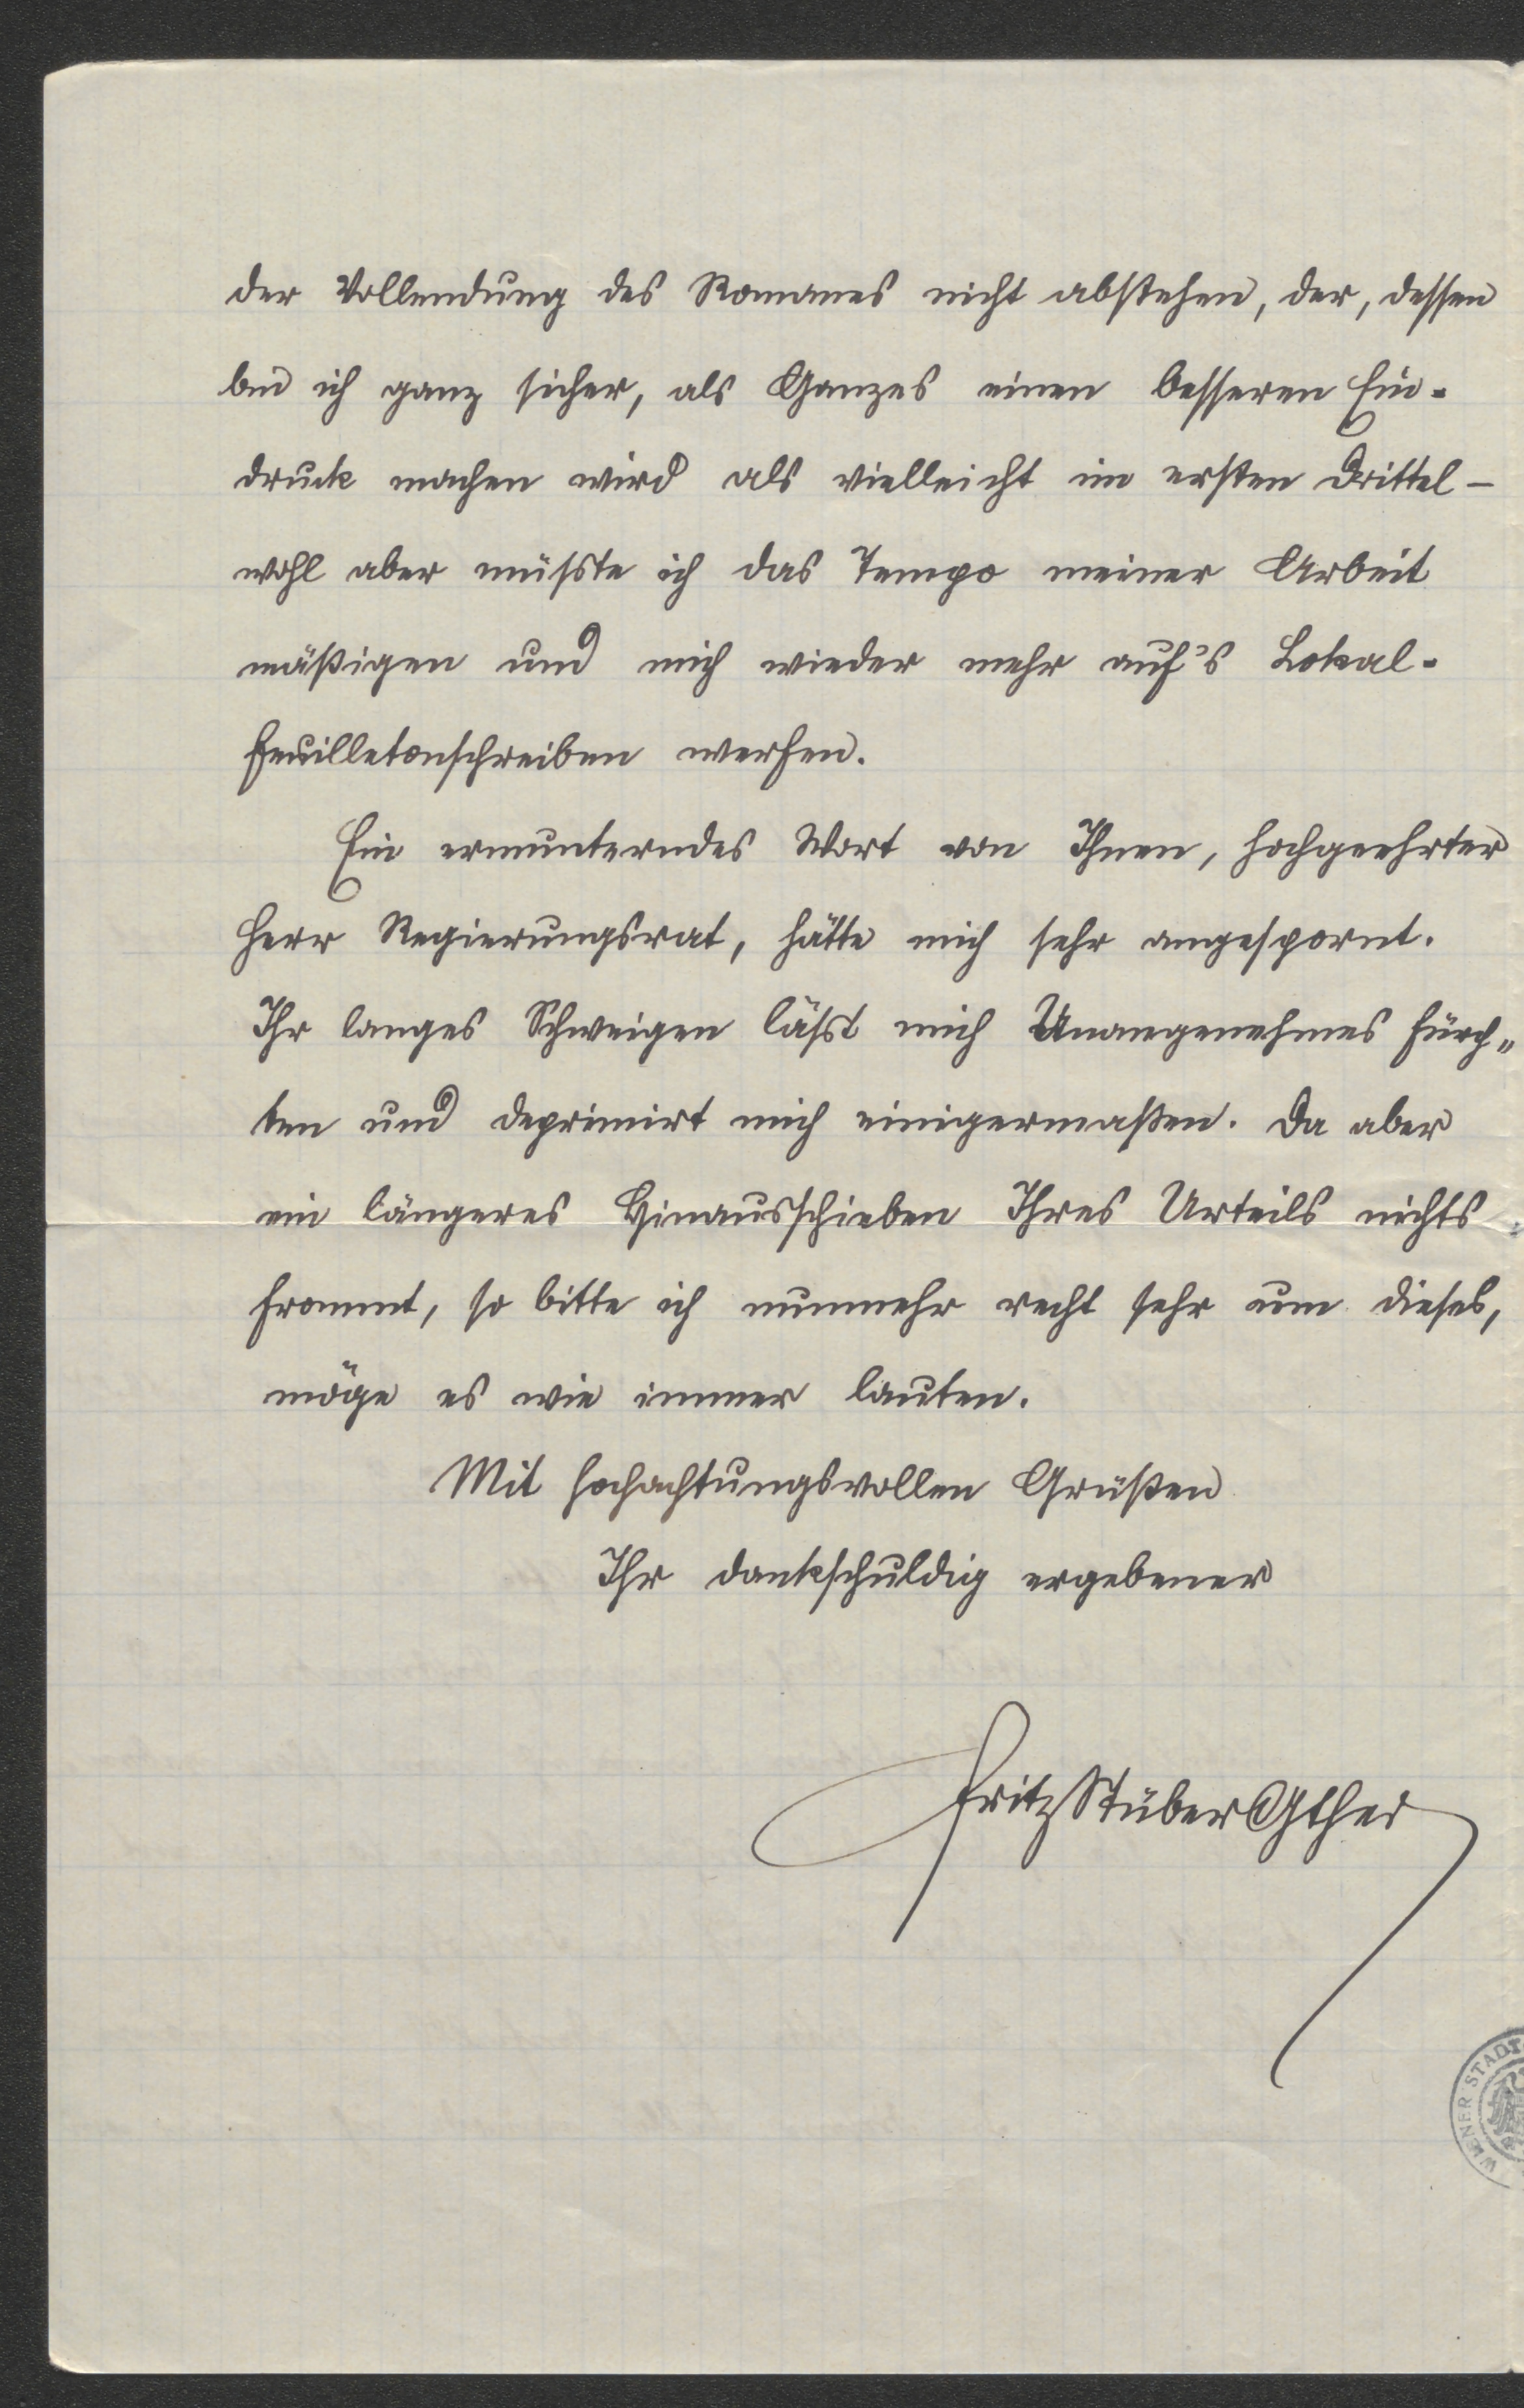 der Vollendung des Romanes nicht abstehen, der, dessen
bin ich ganz sicher, als Ganzes einen besseren Ein-
druck machen wird als vielleicht im ersten Drittel –
wohl aber müsste ich das Tempo meiner Arbeit
mäßigen und mich wieder mehr auf's Lokal-
feuilletonschreiben werfen.
Ein ermunterndes Wort von Ihnen, hochgeehrter
Herr Regierungsrat, hätte mich sehr angespornt.
Ihr langes Schweigen lässt mich Unangenehmes fürch-
ten und deprimirt mich einigermaßen. Da aber
ein längeres Hinausschieben Ihres Urteils nichts
frommt, so bitte ich nunmehr recht sehr um dieses,
möge es wie immer lauten.
Mit hochachtungsvollen Grüßen
Ihr dankschuldig ergebener
Fritz Stüber Gther
WIENER STADT